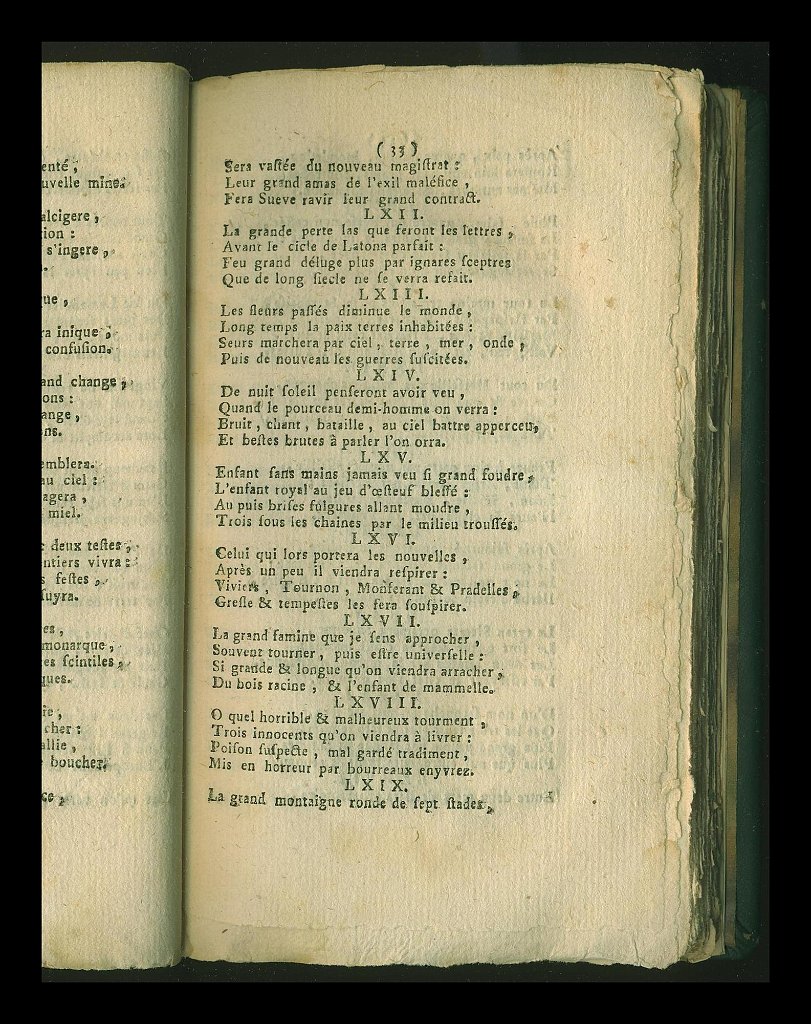 enté ,
uvelle mine.
alcigere ,
ion :
s'ingere ,
ue ,
ra inique ;
confuſion.
and change ,
ons :
ange ,
ns.
emblera.
au ciel :
agera ,
miel.
deux teſtes ,
ntiers vivra :
s feſtes ,
fuyra.
es ,
monarque ,
es ſcintiles ,
ques.
re ,
cher :
allie ,
boucher.
ce ,
( 33 )
Sera vaſtée du nouveau magiſtrat :
Leur grand amas de l'exil maléfice ,
Fera Sueve ravir leur grand contract.
LXII.
La grande perte las que feront les lettres ,
Avant le cicle de Latona parfait :
Feu grand déluge plus par ignares ſceptres
Que de long ſiecle ne ſe verra refait.
LXIII.
Les fleurs paſſés diminue le monde ,
Long temps la paix terres inhabitées :
Seurs marchera par ciel , terre , mer , onde ,
Puis de nouveau les guerres ſuſcitées.
LXIV.
De nuit ſoleil penſeront avoir veu ,
Quand le pourceau demi-homme on verra :
Bruit , chant , bataille , au ciel battre apperceu ,
Et beſtes brutes à parler l'on orra.
LXV.
Enfant ſans mains jamais veu ſi grand foudre ,
L'enfant royal au jeu d'œſteuf bleſſé :
Au puis briſes fulgures allant moudre ,
Trois ſous les chaines par le milieu trouſſés.
LXVI.
Celui qui lors portera les nouvelles ,
Après un peu il viendra reſpirer :
Viviers , Tournon , Monferant & Pradelles ,
Greſle & tempeſtes les fera ſouſpirer.
LXVII.
La grand famine que je ſens approcher ,
Souvent tourner , puis eſtre univerſelle :
Si grande & longue qu'on viendra arracher ,
Du bois racine , & l'enfant de mammelle.
LXVIII.
O quel horrible & malheureux tourment ,
Trois innocents qu'on viendra à livrer :
Poiſon ſuſpecte , mal gardé tradiment ,
Mis en horreur par bourreaux enyvrez.
LXIX.
La grand montaigne ronde de ſept ſtades ,